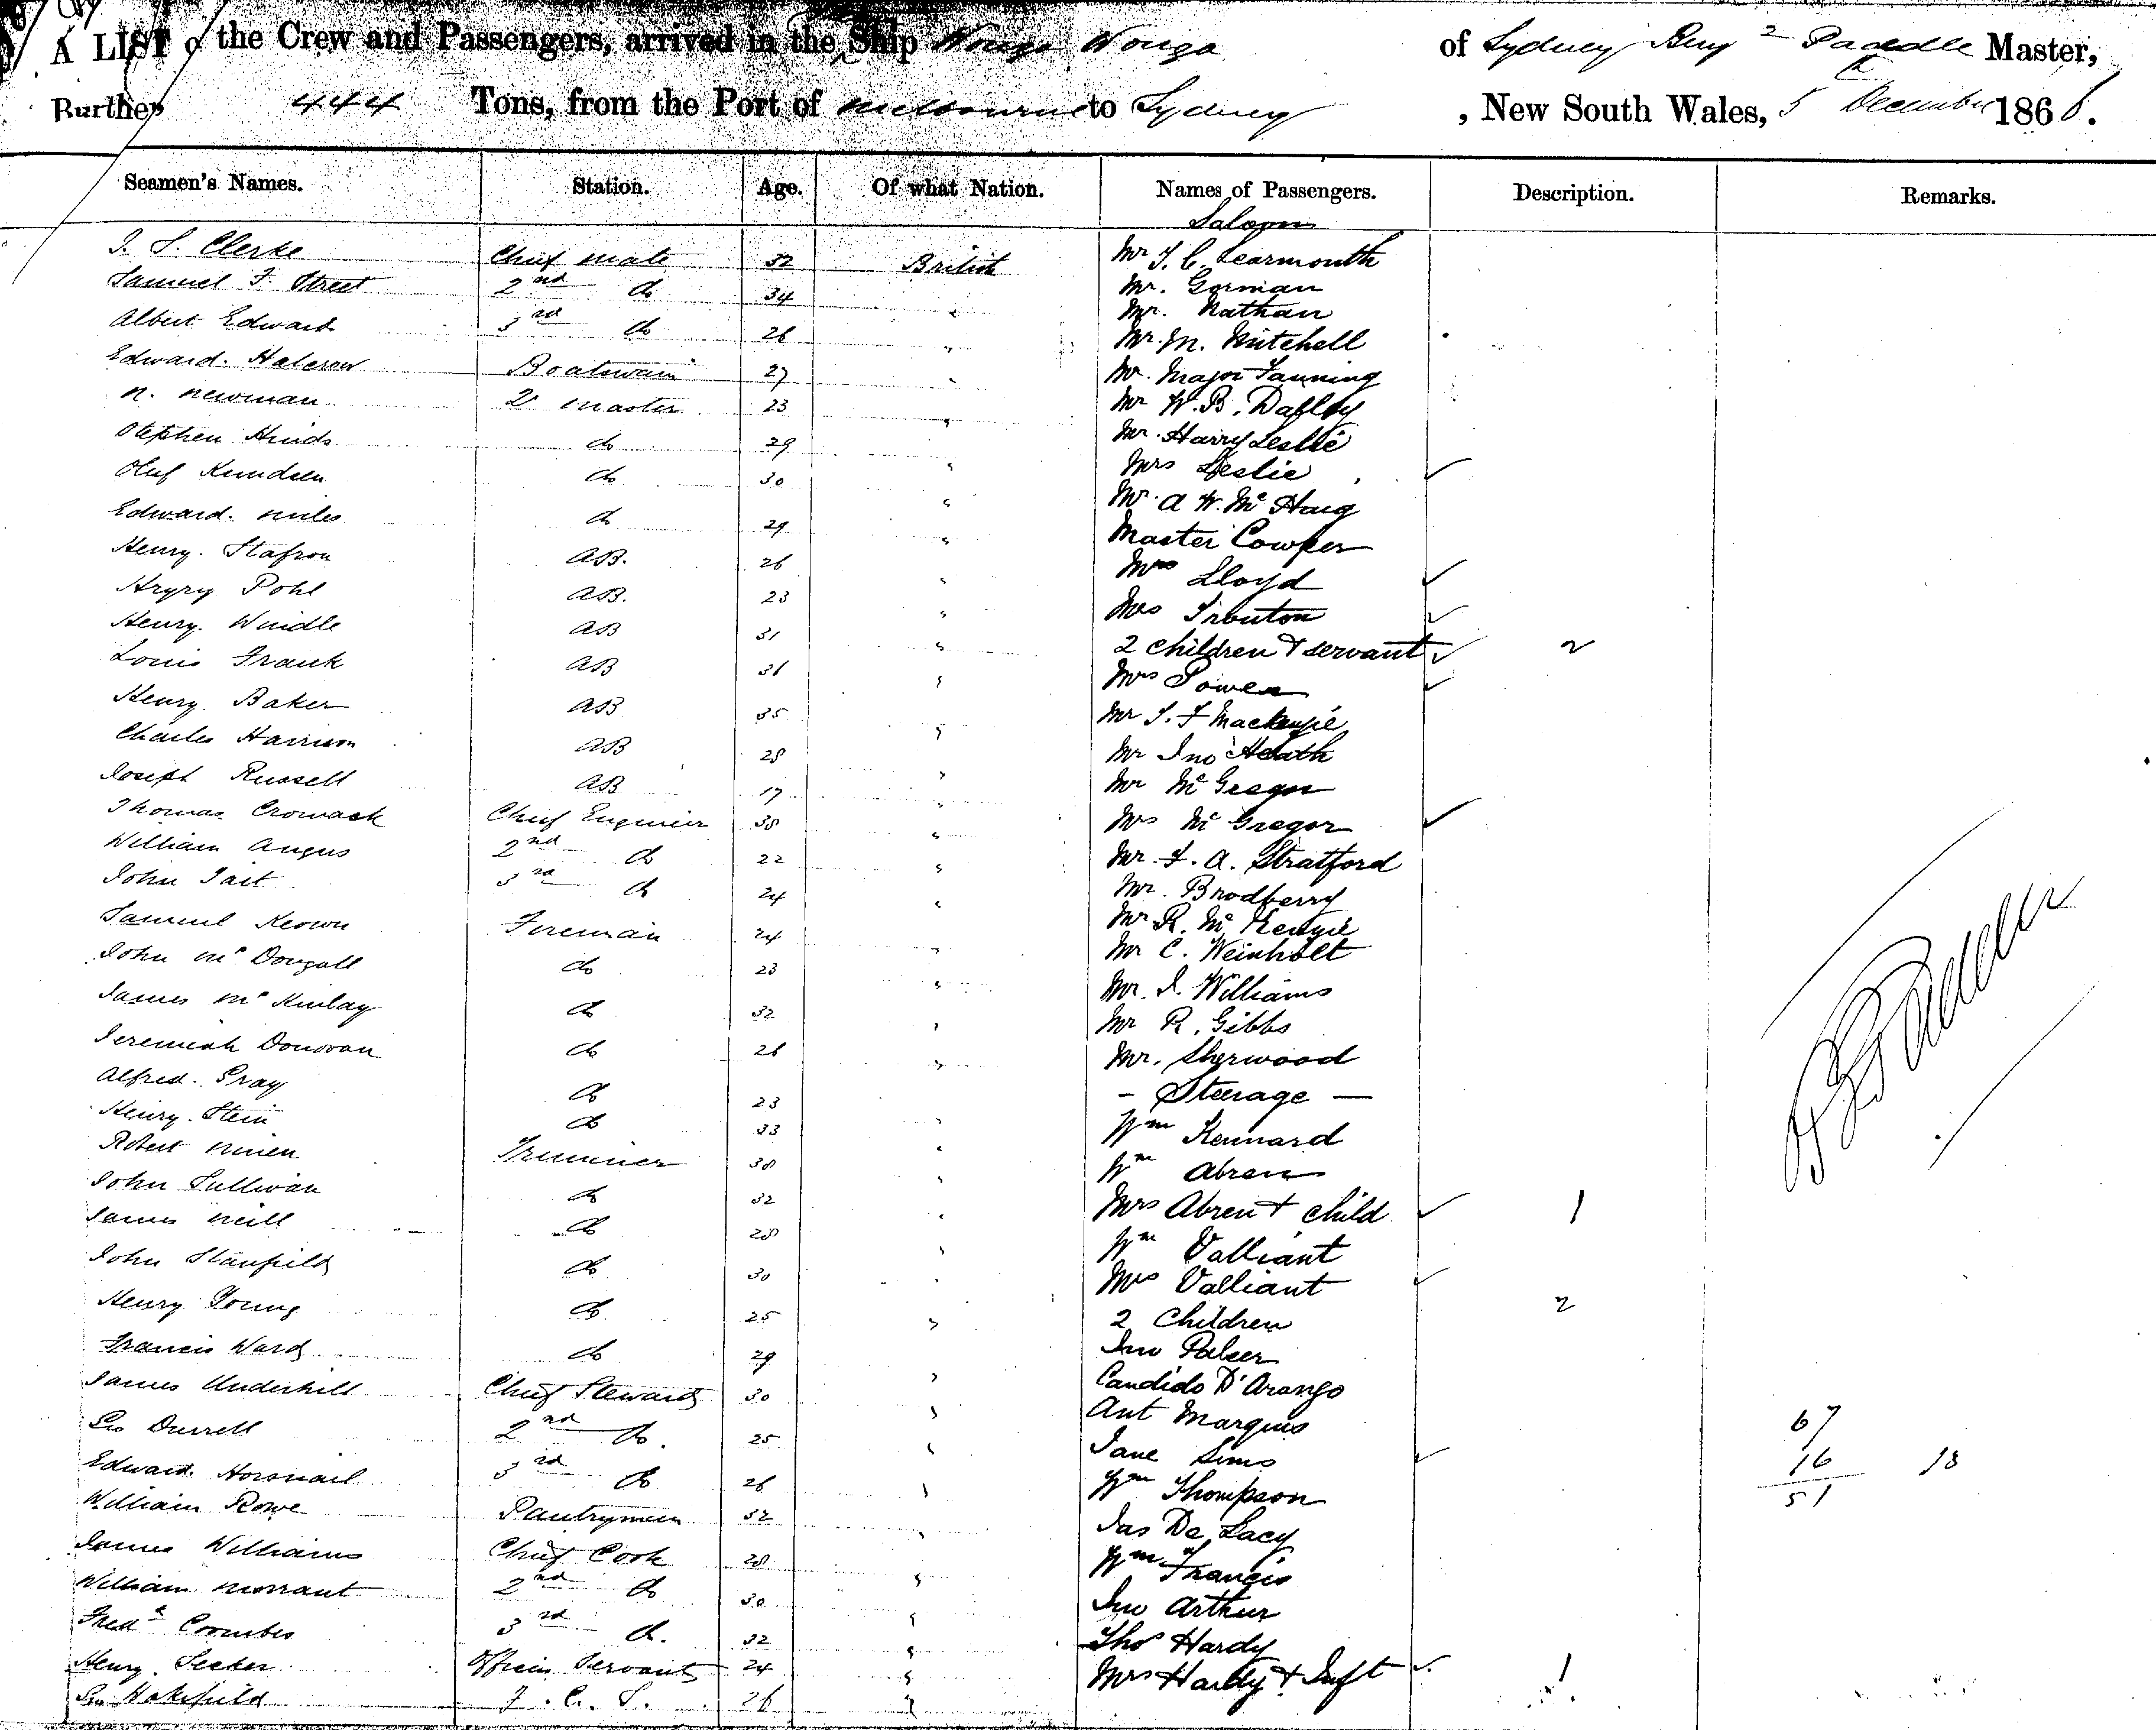 A LIST of the Crew and Passengers, arrived in the Ship Wonga Wonga of Sydney Master,
Burthen 444 Tons, from the Port of Melbourne to Sydney , New South Wales, 5 December 1866.
Seamen's Names. Station. Age. Of what Nation. Names of Passengers. Description. Remarks.
Saloon
J. S. Clerke Chief Mate 32 British Mr J. C. Learmouth
Samuel F. Street 2nd do 34 " Mr. Gorman
Mr. Nathan
Albert Edward 3rd do 26 " Mr. M. Mitchell
Edward. Halcrow Boatswain 27 " Mr. Major Fanning
N. Newman 2 Master 23 " Mr W. B. Dalley
Stephen Hinds do 29 " Mr. Harry Leslie
Oluf Knudsen do 30 " Mrs Leslie ✓
Mr. A W. Mc Haig
Edward. Miles do 29 " Master Cowper
Henry. AB. 26 " Mrs Lloyd ✓
Pohl AB. 23 " Mrs Trouton ✓
Henry. Windle AB 31 " 2 Children & servant ✓ 2
Louis Frank AB 31 " Mrs Power ✓
Henry. Baker AB 35 " Mr J. F Mackenzie
Charles Harrison AB 28 " Mr Jno Heath
Joseph Russell AB 19 " Mr McGregor
Thomas Cromack Chief Engineer 38 " Mrs McGregor ✓
William Angus 2nd do 22 " Mr. F. A. Stratford
John Tait 3rd do 24 " Mr. Brodberry
Samuel Keown Fireman 24 " Mr R. McKenzie
John McDougall do 23 " Mr C. Weinholt
Mr. J. Williams
James McKinlay do 32 " Mr R. Gibbs
Jeremiah Donovan do 26 " Mr. Sherwood
Alfred. Gray do 23 - Steerage -
Henry. Stein do 33 " Wm Kennard
Robert Trimmer 38 " Wm Abren
John Sullivan do 32 " Mrs Abren & child ✓ 1
James Neill do 28 " Wm Valliant
John Stanfield do 30 " Mrs Valliant ✓
Henry Young do 25 " 2 Children 2
Francis Ward do 29 " Jno Palser
James Underhill Chief Steward 30 " Candido D'Arango
Geo Durrell 2nd do. 25 " Ant Marquis 67
Edward. Horsnail 3rd do 26 " Jane Sims ✓ 16 13
William Rowe Pantryman 32 " Wm Thompson 51
James Williams Chief Cook 28 " Jas De Lacy
William Morrant 2nd do 30 " Wm Francis
Fredk Coombes 3rd do. 32 " Jno Arthur
Henry. Officers Servant 24 " Thos Hardy
Geo Wakefield 26 " Mrs Hardy & Inft ✓ 1